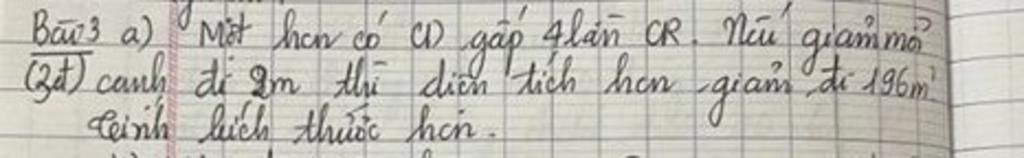 Bài 3 a) Một hcn có CD gấp 4 lần CR. Nếu giảm mỗi
(3đ) cạnh đi 2m thì diện tích hcn giảm đi 196m²
Tính kích thước hcn.